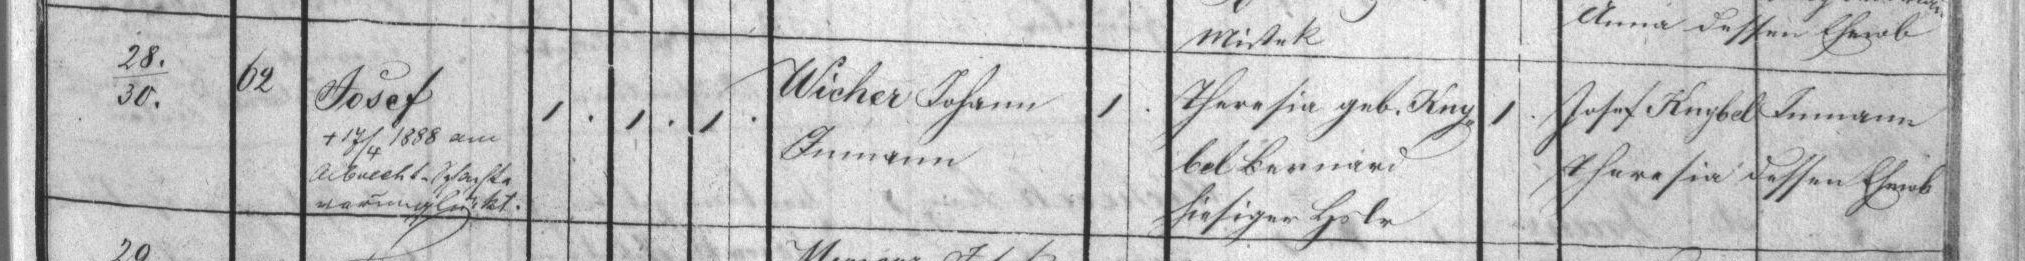 Mistek
Anna dessen Eheweib
28.
30.
62
Josef
+ 17/4 1888 am
Albrecht-Schachte
verunglückt.
1 . 1 . 1 .
Wicher Johann
Inmann
1 .
Theresia geb. Kny=
bel Bernard
hiesiger Hslr
1 .
Josef Knybel Inmann
Theresia dessen Eheweib
29